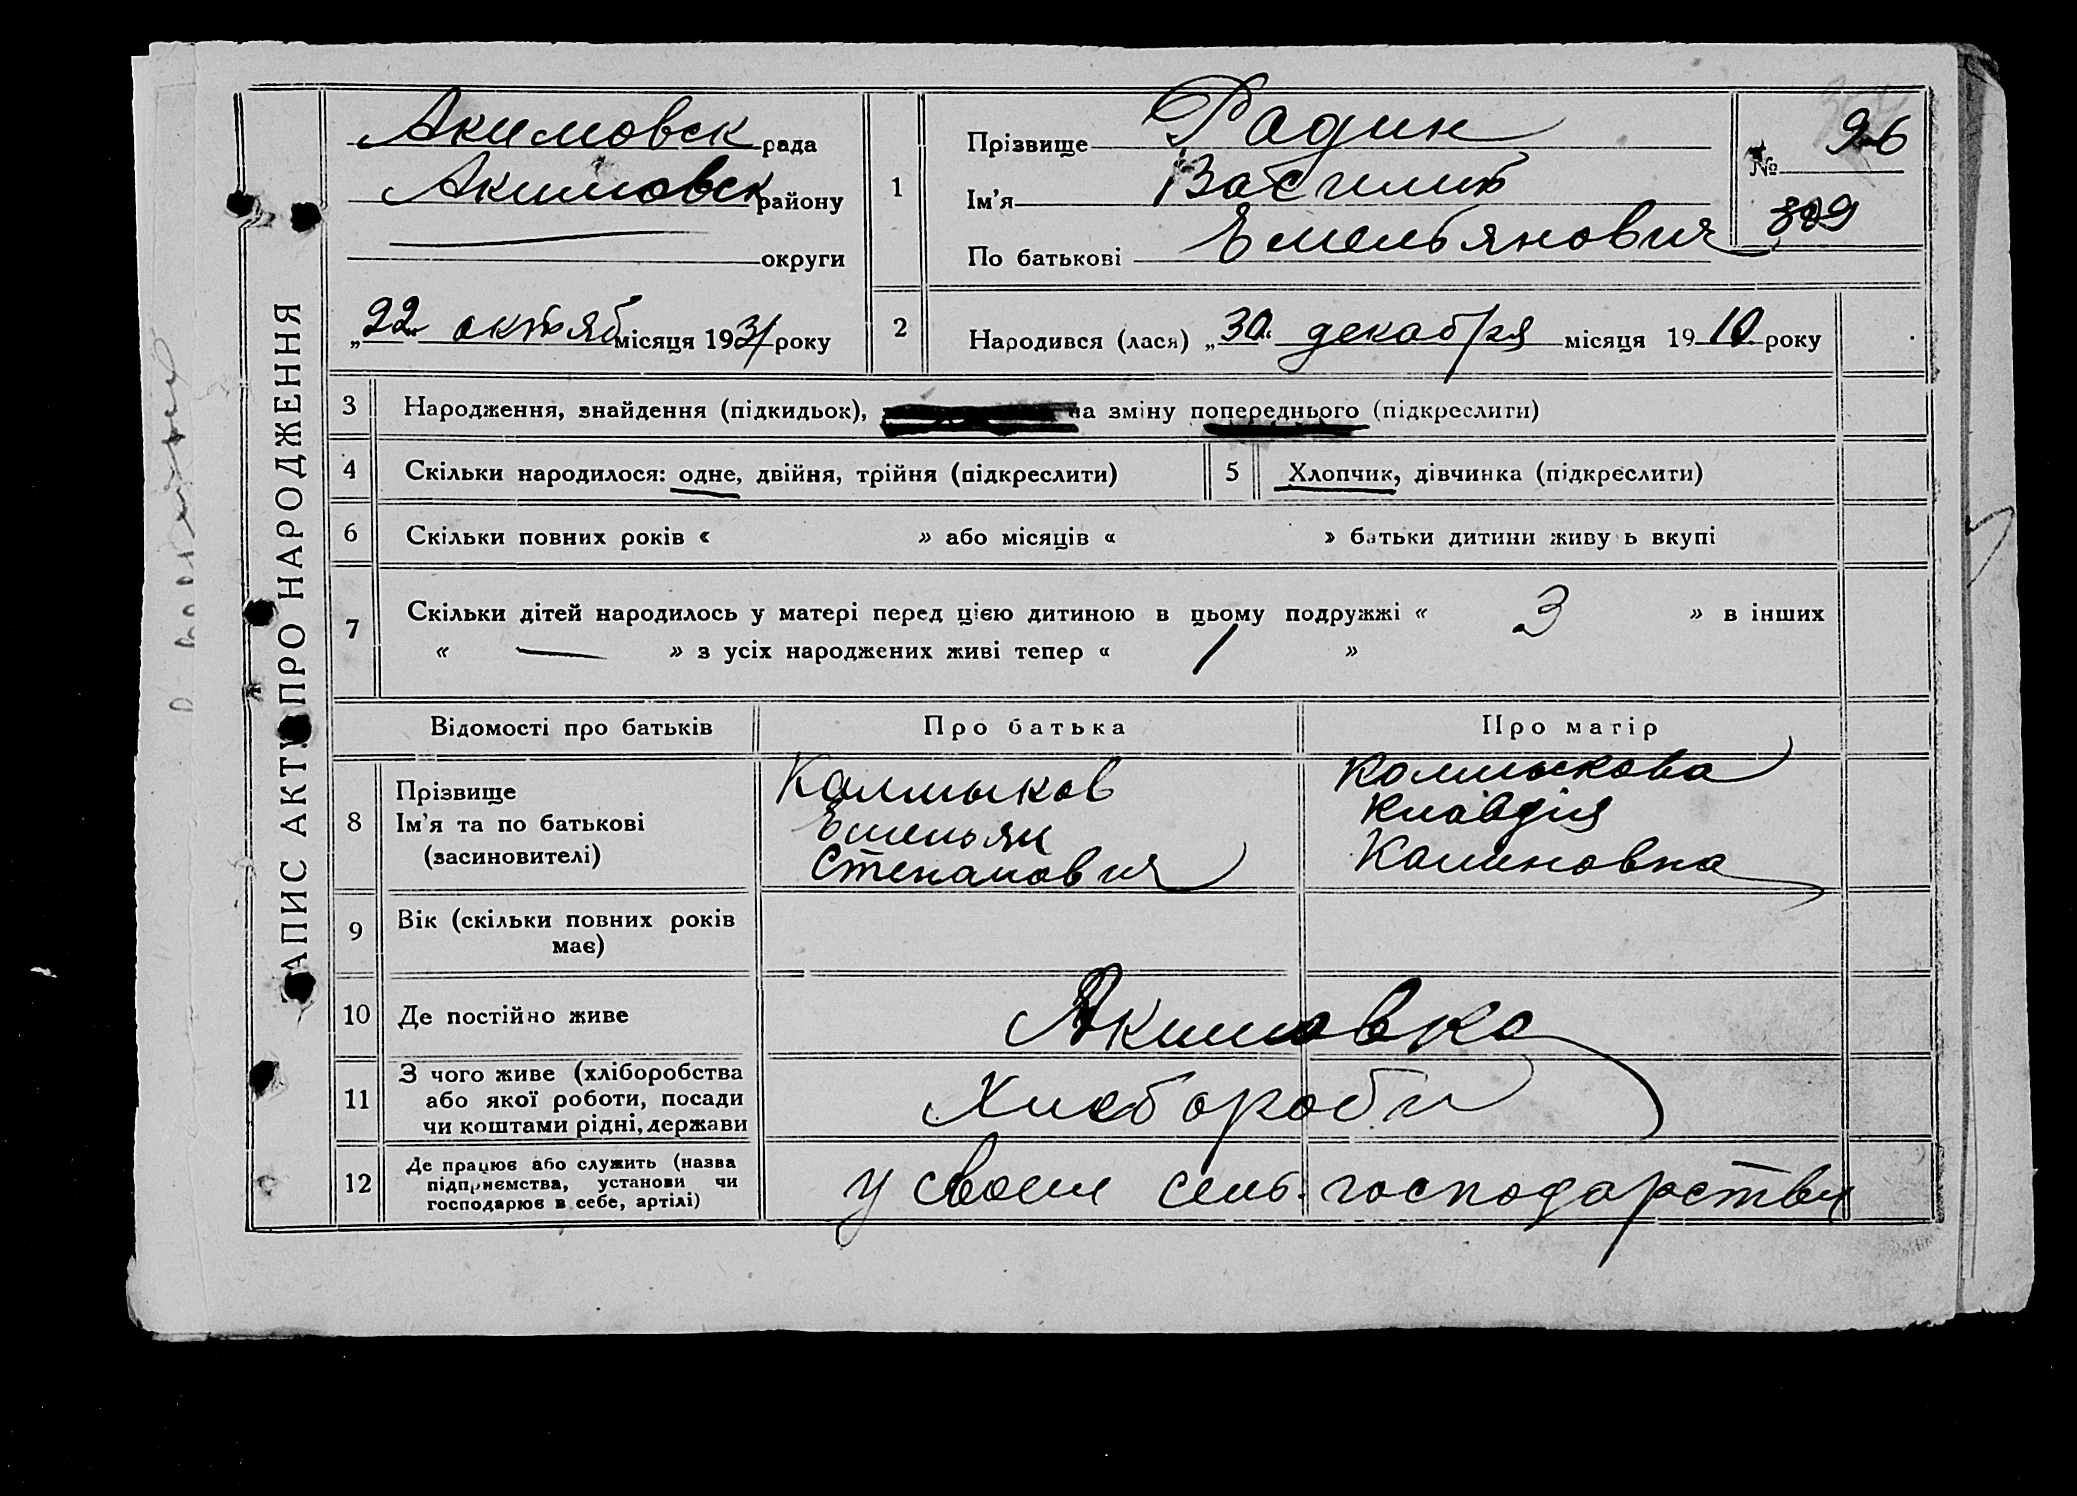 АПИС АКТУ ПРО НАРОДЖЕННЯ
Акимовск рада
Акимовск району
округи
„22 октяб місяця 1931 року
1
Прізвище Радин
Ім'я Василий
По батькові Емельянович
№ 96
809
2
Народився (лася) „30 декабря місяця 1910 року
3 Народження, знайдення (підкидьок), на зміну попереднього (підкреслити)
4 Скільки народилося: одне, двійня, трійня (підкреслити) 5 Хлопчик, дівчинка (підкреслити)
6 Скільки повних років « » або місяців « » батьки дитини живуть вкупі
7 Скільки дітей народилось у матері перед цією дитиною в цьому подружжі « 3 » в інших
« — » з усіх народжених живі тепер « 1 »
Відомості про батьків Про батька Про матір
8 Прізвище
Ім'я та по батькові
(засиновителі)
Калмыков
Емельян
Степанович
Калмыкова
Клавдия
Калиновна
9 Вік (скільки повних років
має)
10 Де постійно живе Акимовка
11 З чого живе (хліборобства
або якої роботи, посади
чи коштами рідні, держави
Хлебороби
12 Де працює або служить (назва
підприємства, установи чи
господарює в себе, артілі)
у своем сель. господарстви